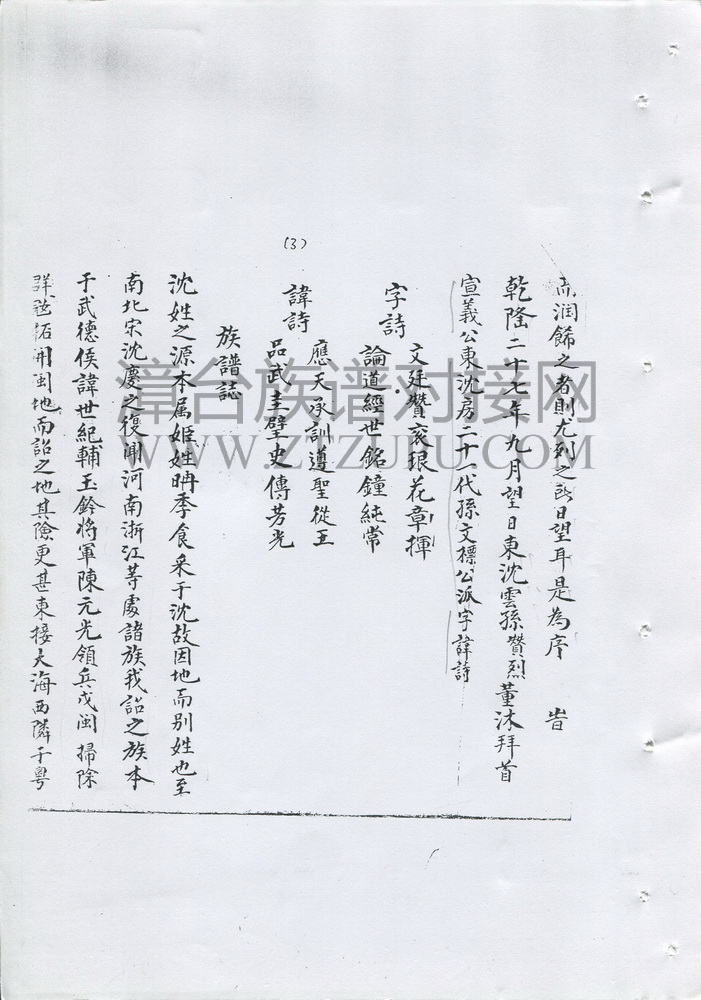 (3)
而润餙之者則尤列之所日望耳是為序 旹
乾隆二十七年九月望日東沈雲孫贊烈薰沐拜首
宣義公東沈房二十一代孫文標公派字諱詩
字詩
文廷贊衮琅花章揮
論道經世銘鐘純常
諱詩
應天承訓遵聖從王
品武圭璧史傳芳光
族譜誌
沈姓之源本属姬姓冉季食采于沈故因地而别姓也至
南北宋沈慶之復聞河南浙江等處諸族我詔之族本
于武德侯諱世紀輔玉鈐將軍陳元光領兵戍閩掃除
群盜拓開閩地而詔之地其險更甚東接大海西隣于粤
漳台族谱对接网
WWW.ZTZUPU.COM